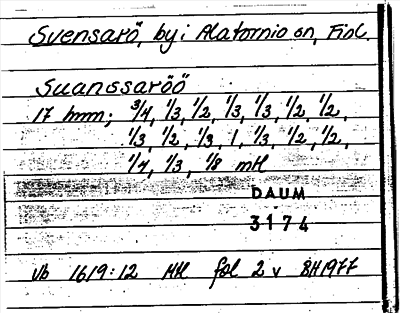 Svensarö, by i Alatornio sn, Finl.
Suanssaröö
17 hmn; 3/4, 1/3, 1/2, 1/3, 1/3, 1/2, 1/2,
1/3, 1/2, 1/3, 1, 1/3, 1/2, 1/2,
1/4, 1/3, 1/8 mtl
DAUM
3174
Vb 1619:12 Mtl fol 2 v BH1977